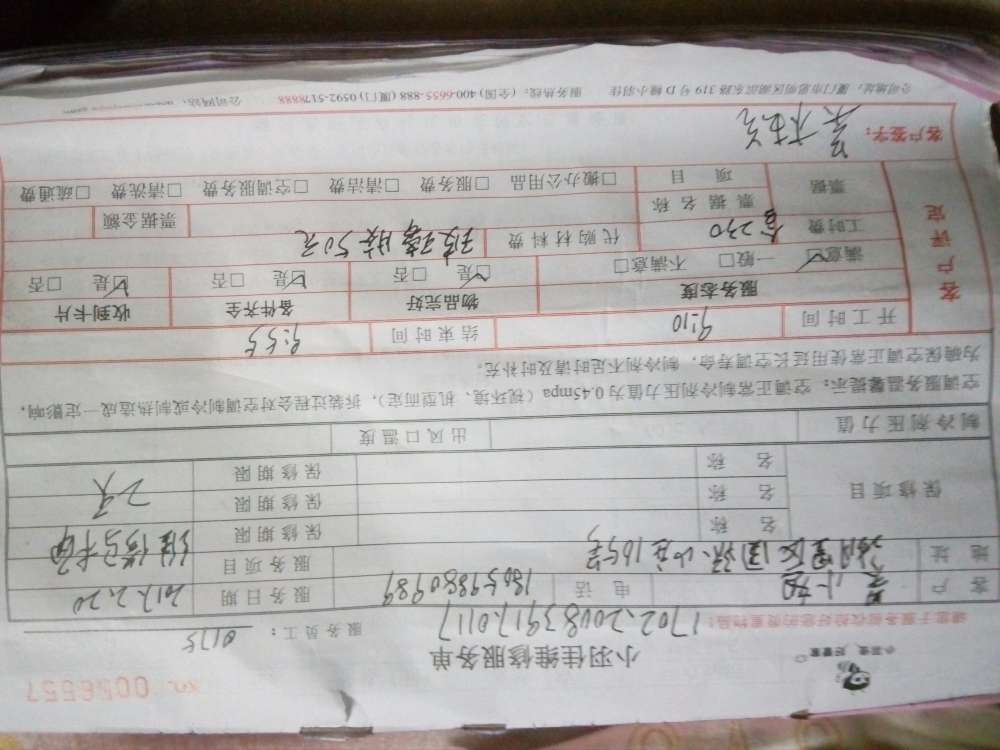 小羽佳 好管家
小羽佳维修服务单
No. 0056557
请您于服务前收拾好您的贵重物品!
1702.20083917.0117
服务员工: 0175
客户 吴小姐 电话 18659880989 服务日期 2017.2.20
地址 湖里区 165号 服务项目 维修马桶
保修项目 名称 保修期限
名称 保修期限
名称 保修期限 2天
制冷剂压力值 出风口温度
空调服务温馨提示: 空调正常制冷剂压力值为0.45mpa (视环境、机型而定), 拆装过程会对空调制冷或制热造成一定影响,
为确保空调正常使用延长空调寿命, 制冷剂不足时请及时请补充。
客户评定
开工时间 9:10 结束时间 9:55
服务态度 物品完好 备件齐全 收到卡片
满意☑ 一般□ 不满意□ ☑是 □否 ☑是 □否 ☑是 □否
工时费 含230 代购材料费 玻璃胶50元
票据 票据名称 票据金额
项目 □搬办公用品 □服务费 □清洁费 □空调服务费 □清洗费 □疏通费
客户签字:
公司地址: 厦门市思明区湖滨东路319号D幢小羽佳 服务热线: (全国) 400-6655-888 (厦门) 0592-5178888 公司网站: